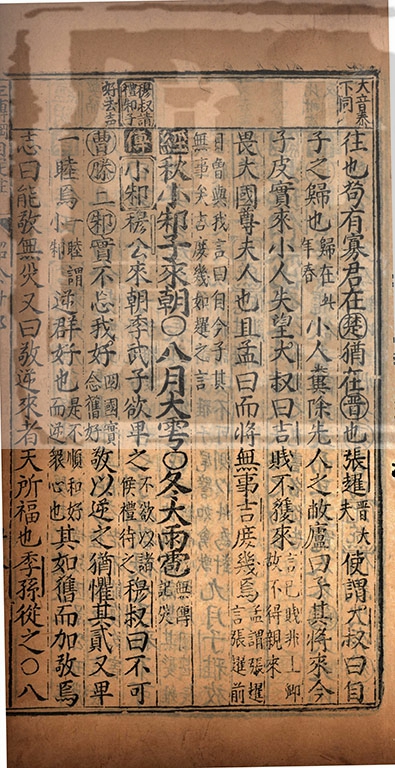 大音泰
下同
往也苟有寡君在楚猶在晉也張趯晉大夫使謂大叔曰自
子之歸也歸在此年春小人糞除先人之敝廬曰子其將來今
子皮實來小人失望大叔曰吉賤不獲來言己賤非上卿故不得親來
畏大國尊夫人也且孟曰而將無事吉庶幾焉孟謂張趯言張趯前
日嘗與我言曰自今子其
無事矣吉庶幾如趯之言
經秋小邾子來朝○八月大雩○冬大雨雹無傳記災
穆叔請
禮邾子
傳小邾穆公來朝季武子欲卑之不欲以諸侯禮待之穆叔曰不可
好去聲
曹滕二邾實不忘我好四國實念舊好敬以逆之猶懼其貳又卑
一睦焉一睦謂小邾逆群好也是不順和好而逆衆心也其如舊而加敬焉
志曰能敬無災又曰敬逆來者天所福也季孫從之○八